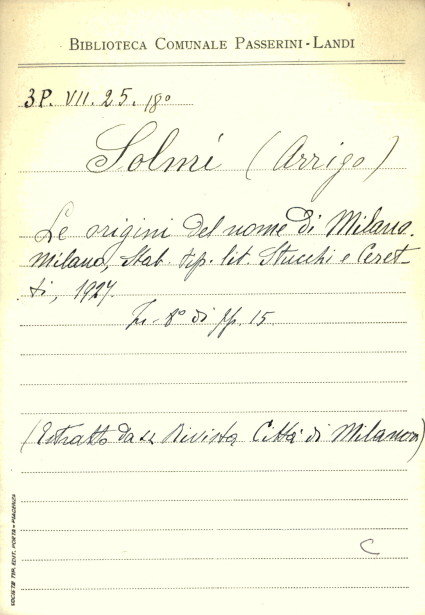 BIBLIOTECA COMUNALE PASSERINI-LANDI
3P. VII. 25. 18º
Solmi (Arrigo)
Le origini del nome di Milano.
Milano, Stab. tip. lit. Stucchi e Ceret-
ti, 1927.
In-8º di pp. 15
(Estratto da la Rivista Città di Milano)
C
SOCIETÀ TIP. EDIT. PORTA - PIACENZA